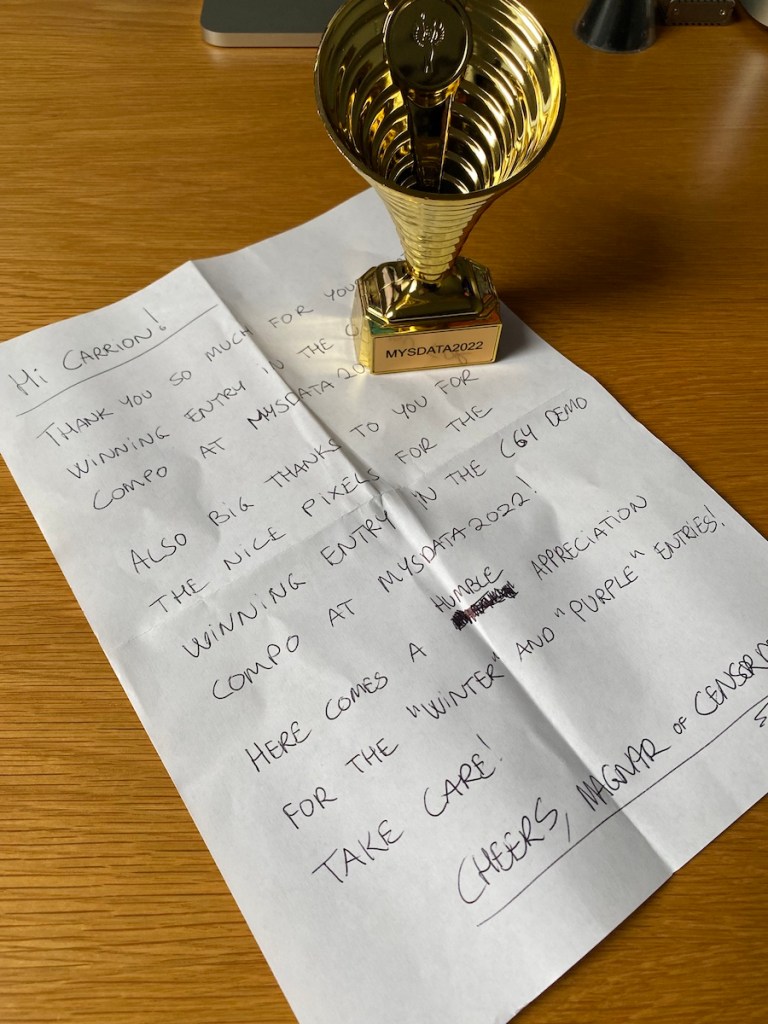 HI CARRION!
THANK YOU SO MUCH FOR YOU
WINNING ENTRY IN THE
COMPO AT MYSDATA 20
ALSO BIG THANKS TO YOU FOR
THE NICE PIXELS FOR THE
WINNING ENTRY IN THE C64 DEMO
COMPO AT MYSDATA 2022!
HERE COMES A HUMBLE APPRECIATION
FOR THE "WINTER" AND "PURPLE" ENTRIES!
TAKE CARE!
CHEERS, MAGNAR OF CENSOR
MYSDATA2022